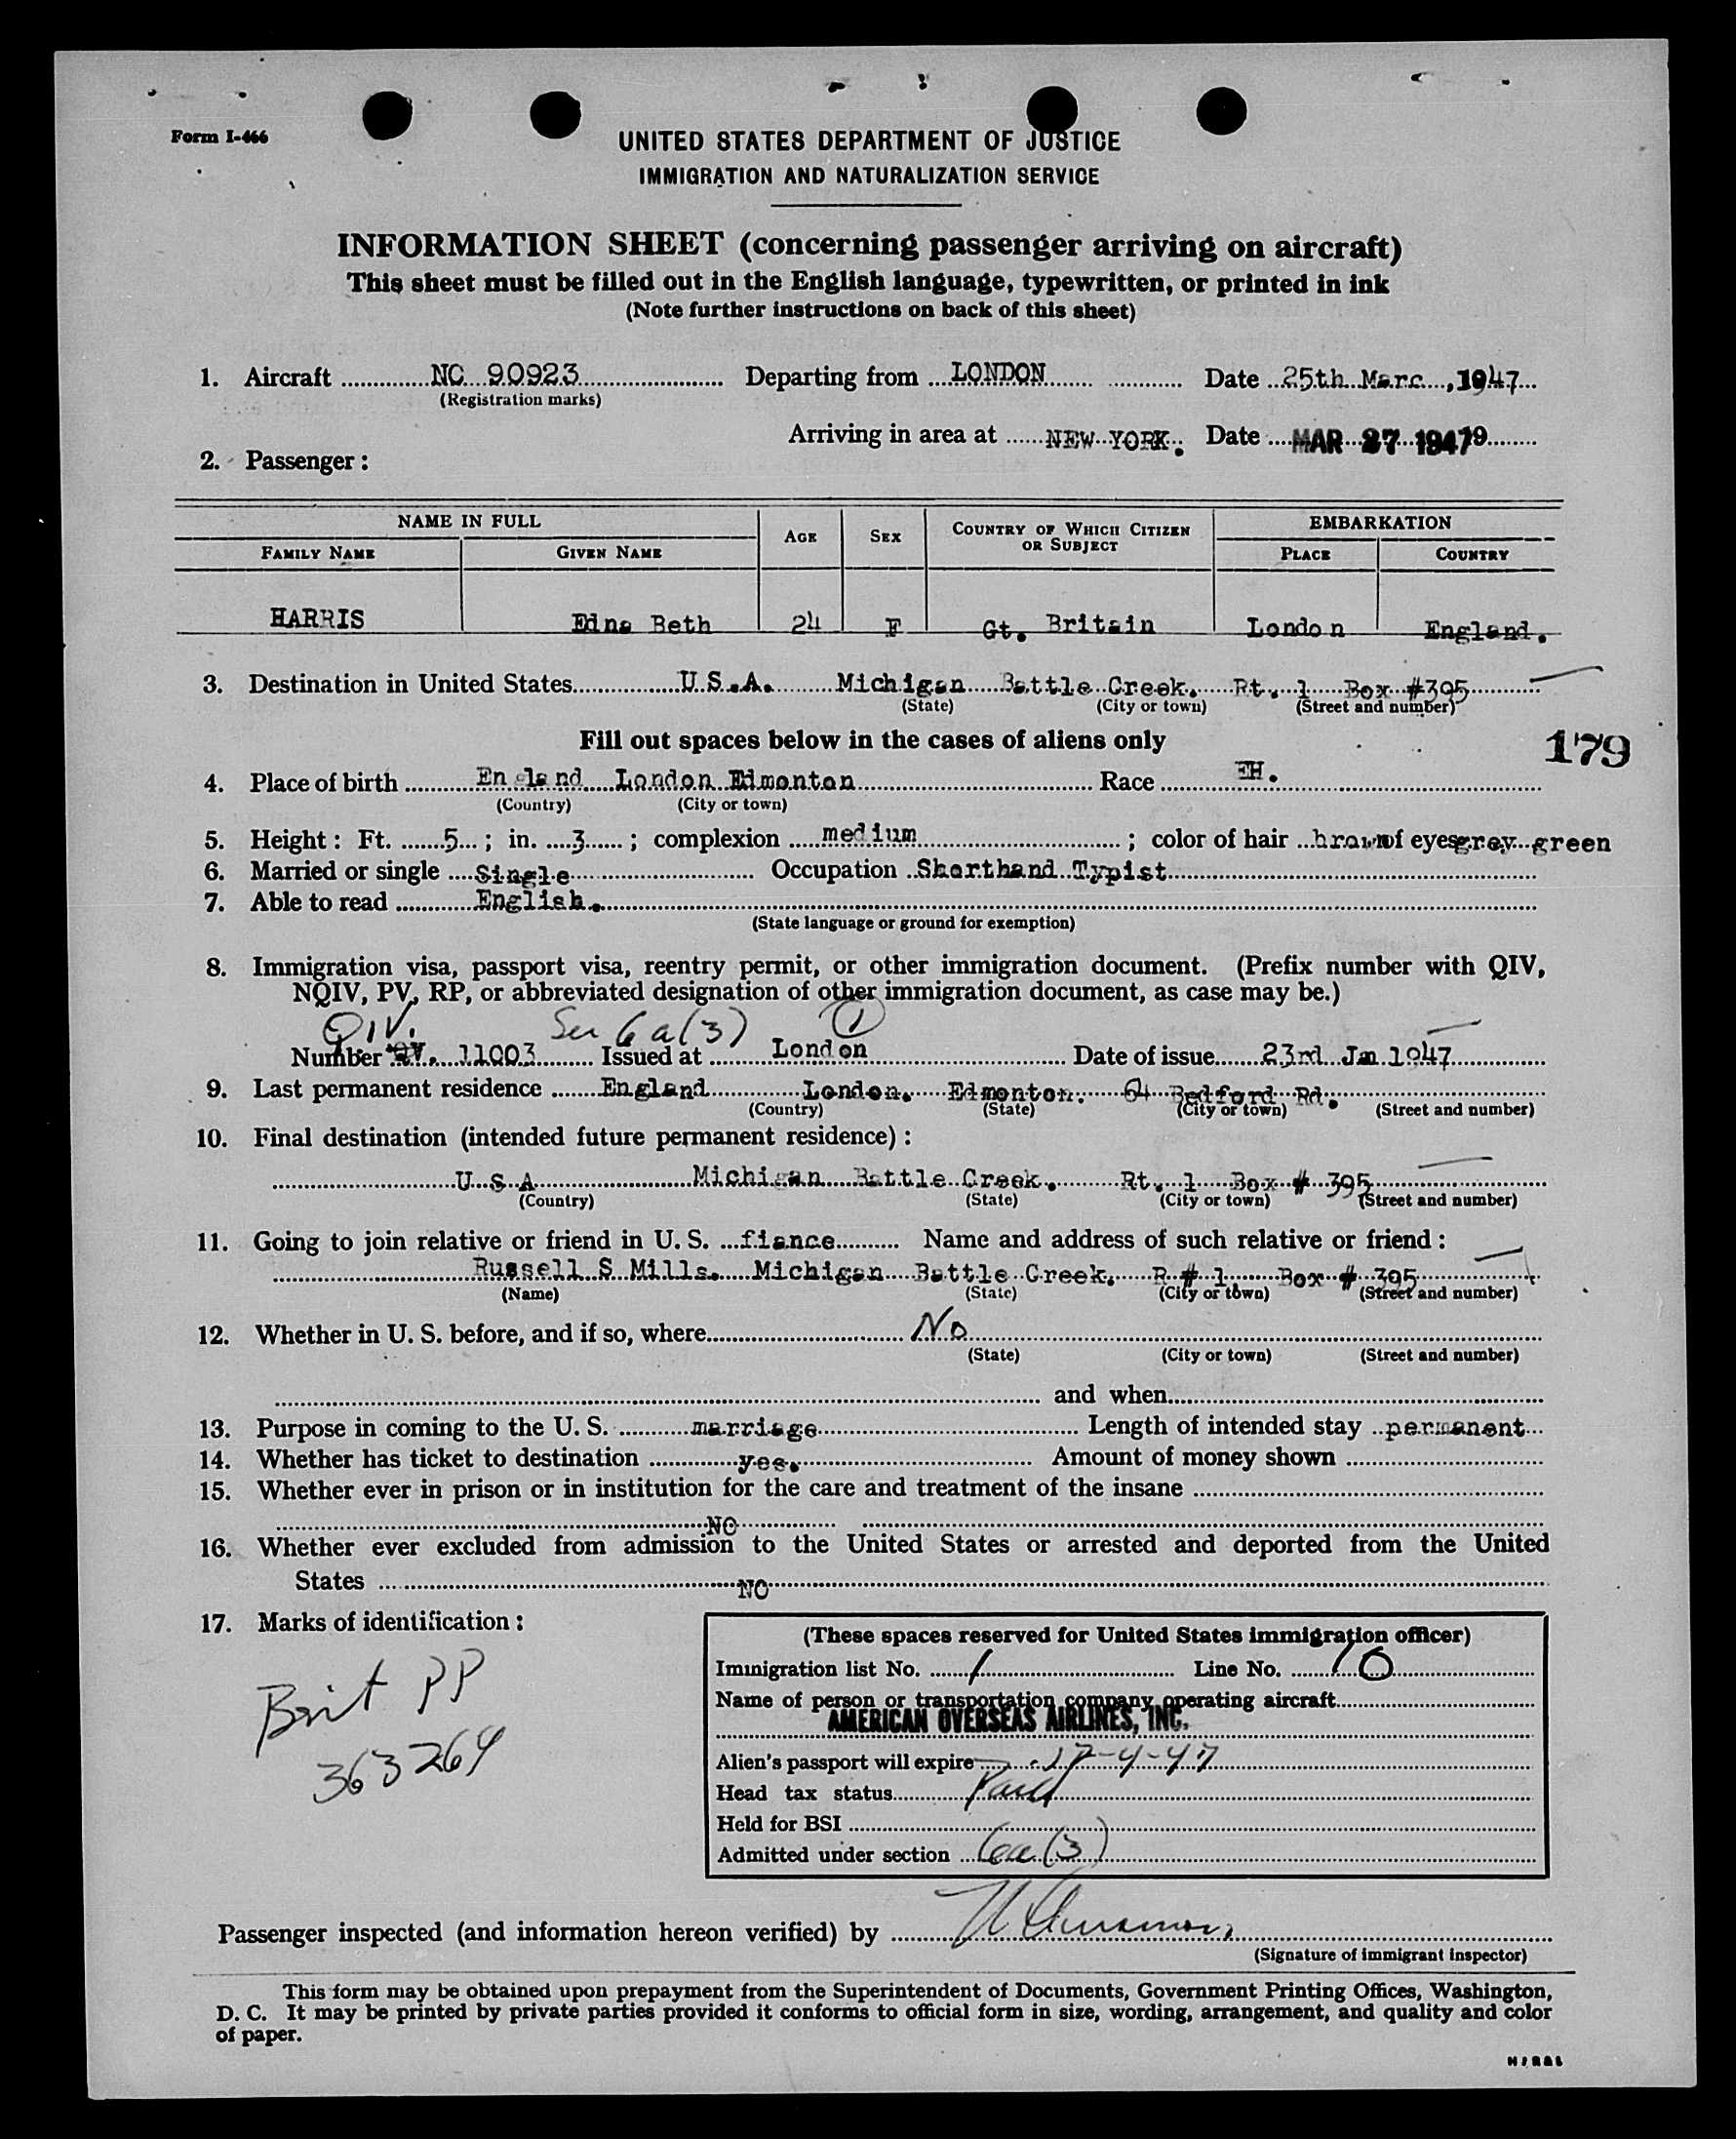 Form I-466
UNITED STATES DEPARTMENT OF JUSTICE
IMMIGRATION AND NATURALIZATION SERVICE
INFORMATION SHEET (concerning passenger arriving on aircraft)
This sheet must be filled out in the English language, typewritten, or printed in ink
(Note further instructions on back of this sheet)
1. Aircraft NC 90923 Departing from LONDON Date 25th Marc, 1947
(Registration marks)
Arriving in area at NEW YORK. Date MAR 27 1947 19
2. Passenger:
NAME IN FULL AGE SEX COUNTRY OF WHICH CITIZEN OR SUBJECT EMBARKATION
FAMILY NAME GIVEN NAME PLACE COUNTRY
HARRIS Edna Beth 24 F Gt. Britain London England.
3. Destination in United States U.S.A. Michigan Battle Creek. Rt. 1 Box #395
(State) (City or town) (Street and number)
Fill out spaces below in the cases of aliens only
179
4. Place of birth England London Edmonton Race EH.
(Country) (City or town)
5. Height: Ft. 5; in. 3; complexion medium; color of hair brown of eyes grey green
6. Married or single Single Occupation Shorthand Typist
7. Able to read English.
(State language or ground for exemption)
8. Immigration visa, passport visa, reentry permit, or other immigration document. (Prefix number with QIV,
NQIV, PV, RP, or abbreviated designation of other immigration document, as case may be.)
QIV. Sec 6a(3) 1
Number QV. 11003 Issued at London Date of issue 23rd Jan 1947
9. Last permanent residence England London. Edmonton. 64 Bedford Rd.
(Country) (State) (City or town) (Street and number)
10. Final destination (intended future permanent residence):
U.S.A Michigan Battle Creek. Rt. 1 Box # 395
(Country) (State) (City or town) (Street and number)
11. Going to join relative or friend in U. S. fiance Name and address of such relative or friend:
Russell S Mills. Michigan Battle Creek. R # 1, Box # 395
(Name) (State) (City or town) (Street and number)
12. Whether in U. S. before, and if so, where No
(State) (City or town) (Street and number)
and when
13. Purpose in coming to the U. S. marriage Length of intended stay permanent
14. Whether has ticket to destination yes. Amount of money shown
15. Whether ever in prison or in institution for the care and treatment of the insane
NO
16. Whether ever excluded from admission to the United States or arrested and deported from the United
States NO
17. Marks of identification:
Brit PP
363264
(These spaces reserved for United States immigration officer)
Immigration list No. 1 Line No. 10
Name of person or transportation company operating aircraft
AMERICAN OVERSEAS AIRLINES, INC.
Alien's passport will expire 17-4-47
Head tax status Paid
Held for BSI
Admitted under section 6a(3)
Passenger inspected (and information hereon verified) by
(Signature of immigrant inspector)
This form may be obtained upon prepayment from the Superintendent of Documents, Government Printing Offices, Washington,
D. C. It may be printed by private parties provided it conforms to official form in size, wording, arrangement, and quality and color
of paper.